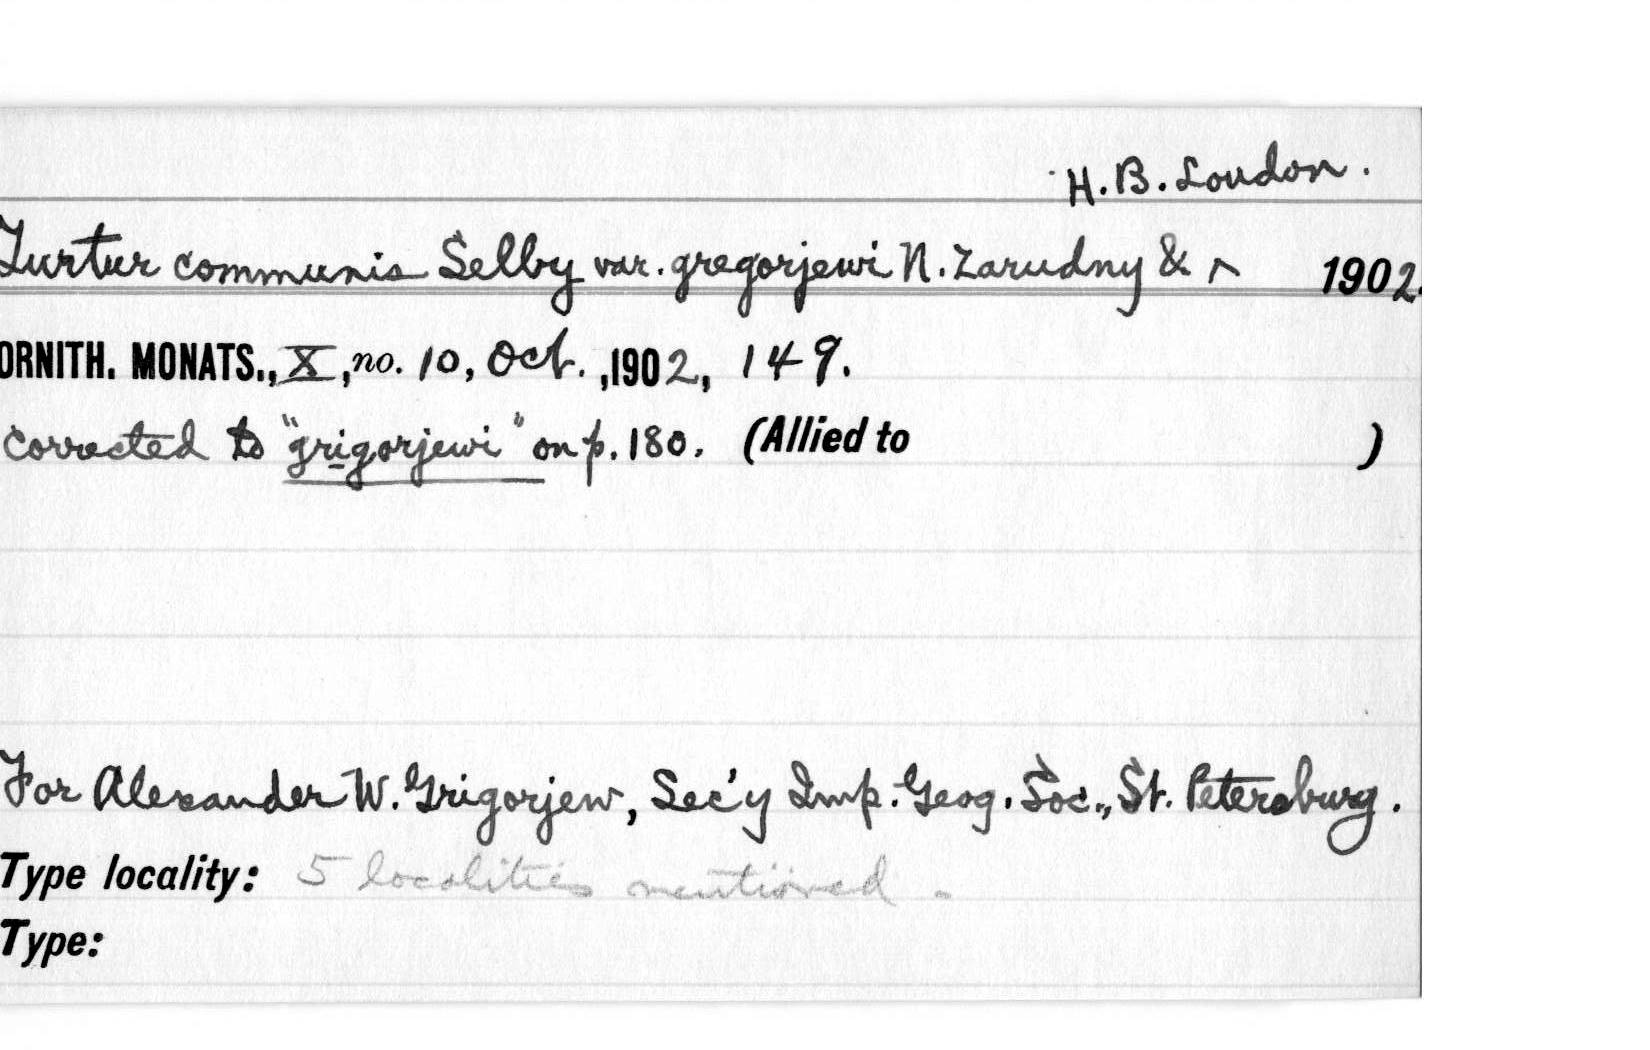 H. B. Loudon.
Turtur communis Selby var. gregorjewi N. Zarudny & ^ 1902.
ORNITH. MONATS., X, no. 10, Oct., 1902, 149.
Corrected to "grigorjewi" on p. 180. (Allied to )
For Alexander W. Grigorjew, Sec'y Imp. Geog. Soc., St. Petersburg.
Type locality: 5 localities mentioned.
Type: